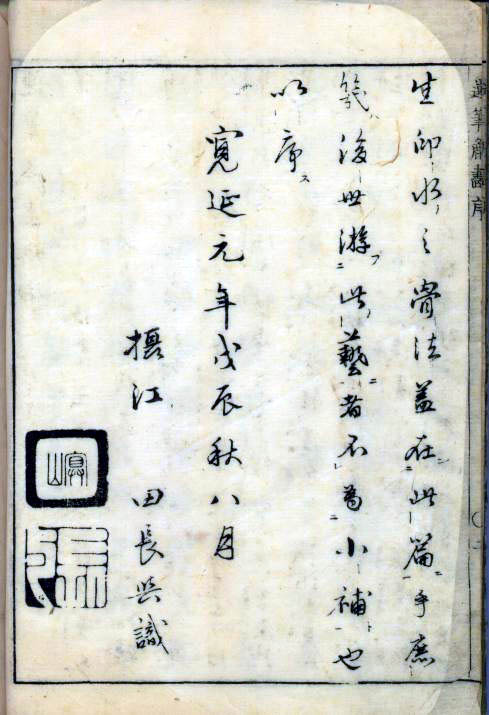 生印水之骨法蓋在此篇乎庶
幾後世游此藝者不為小補也
以序
寛延元年戊辰秋八月
摂江 田長與識